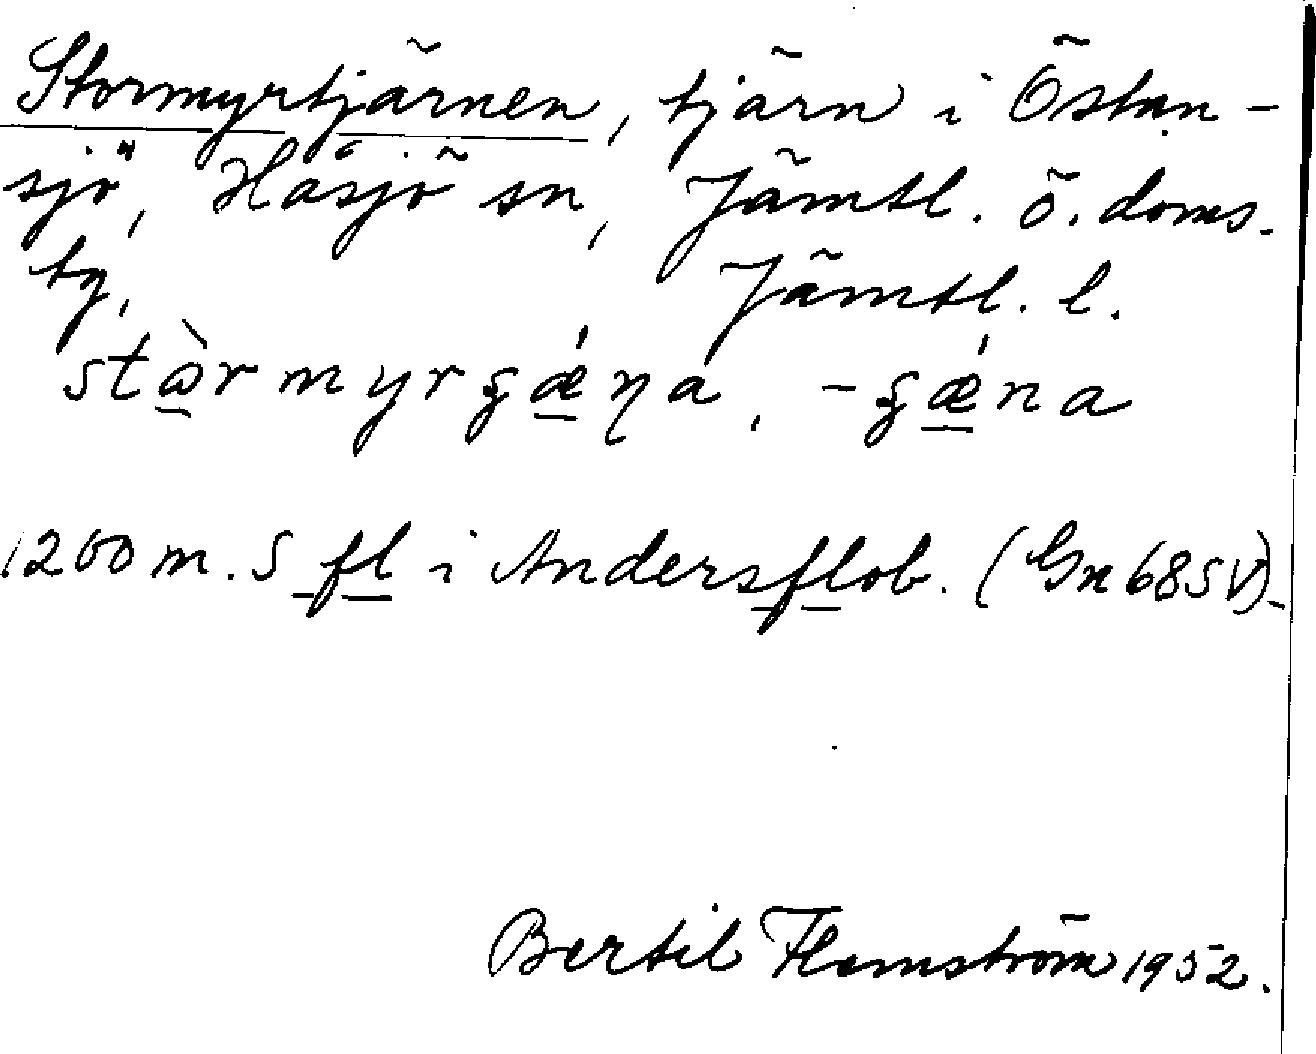 Stormyrtjärnen, tjärn i Östan-
sjö, Håsjö sn, Jämtl. ö. doms.
tg, Jämtl. l.
stɷ̀rmyrʂǽŋa, -ʂǽna
1200 m. S fl i Andersflob. (Gx 68 SV).
Bertil Flemström 1952.